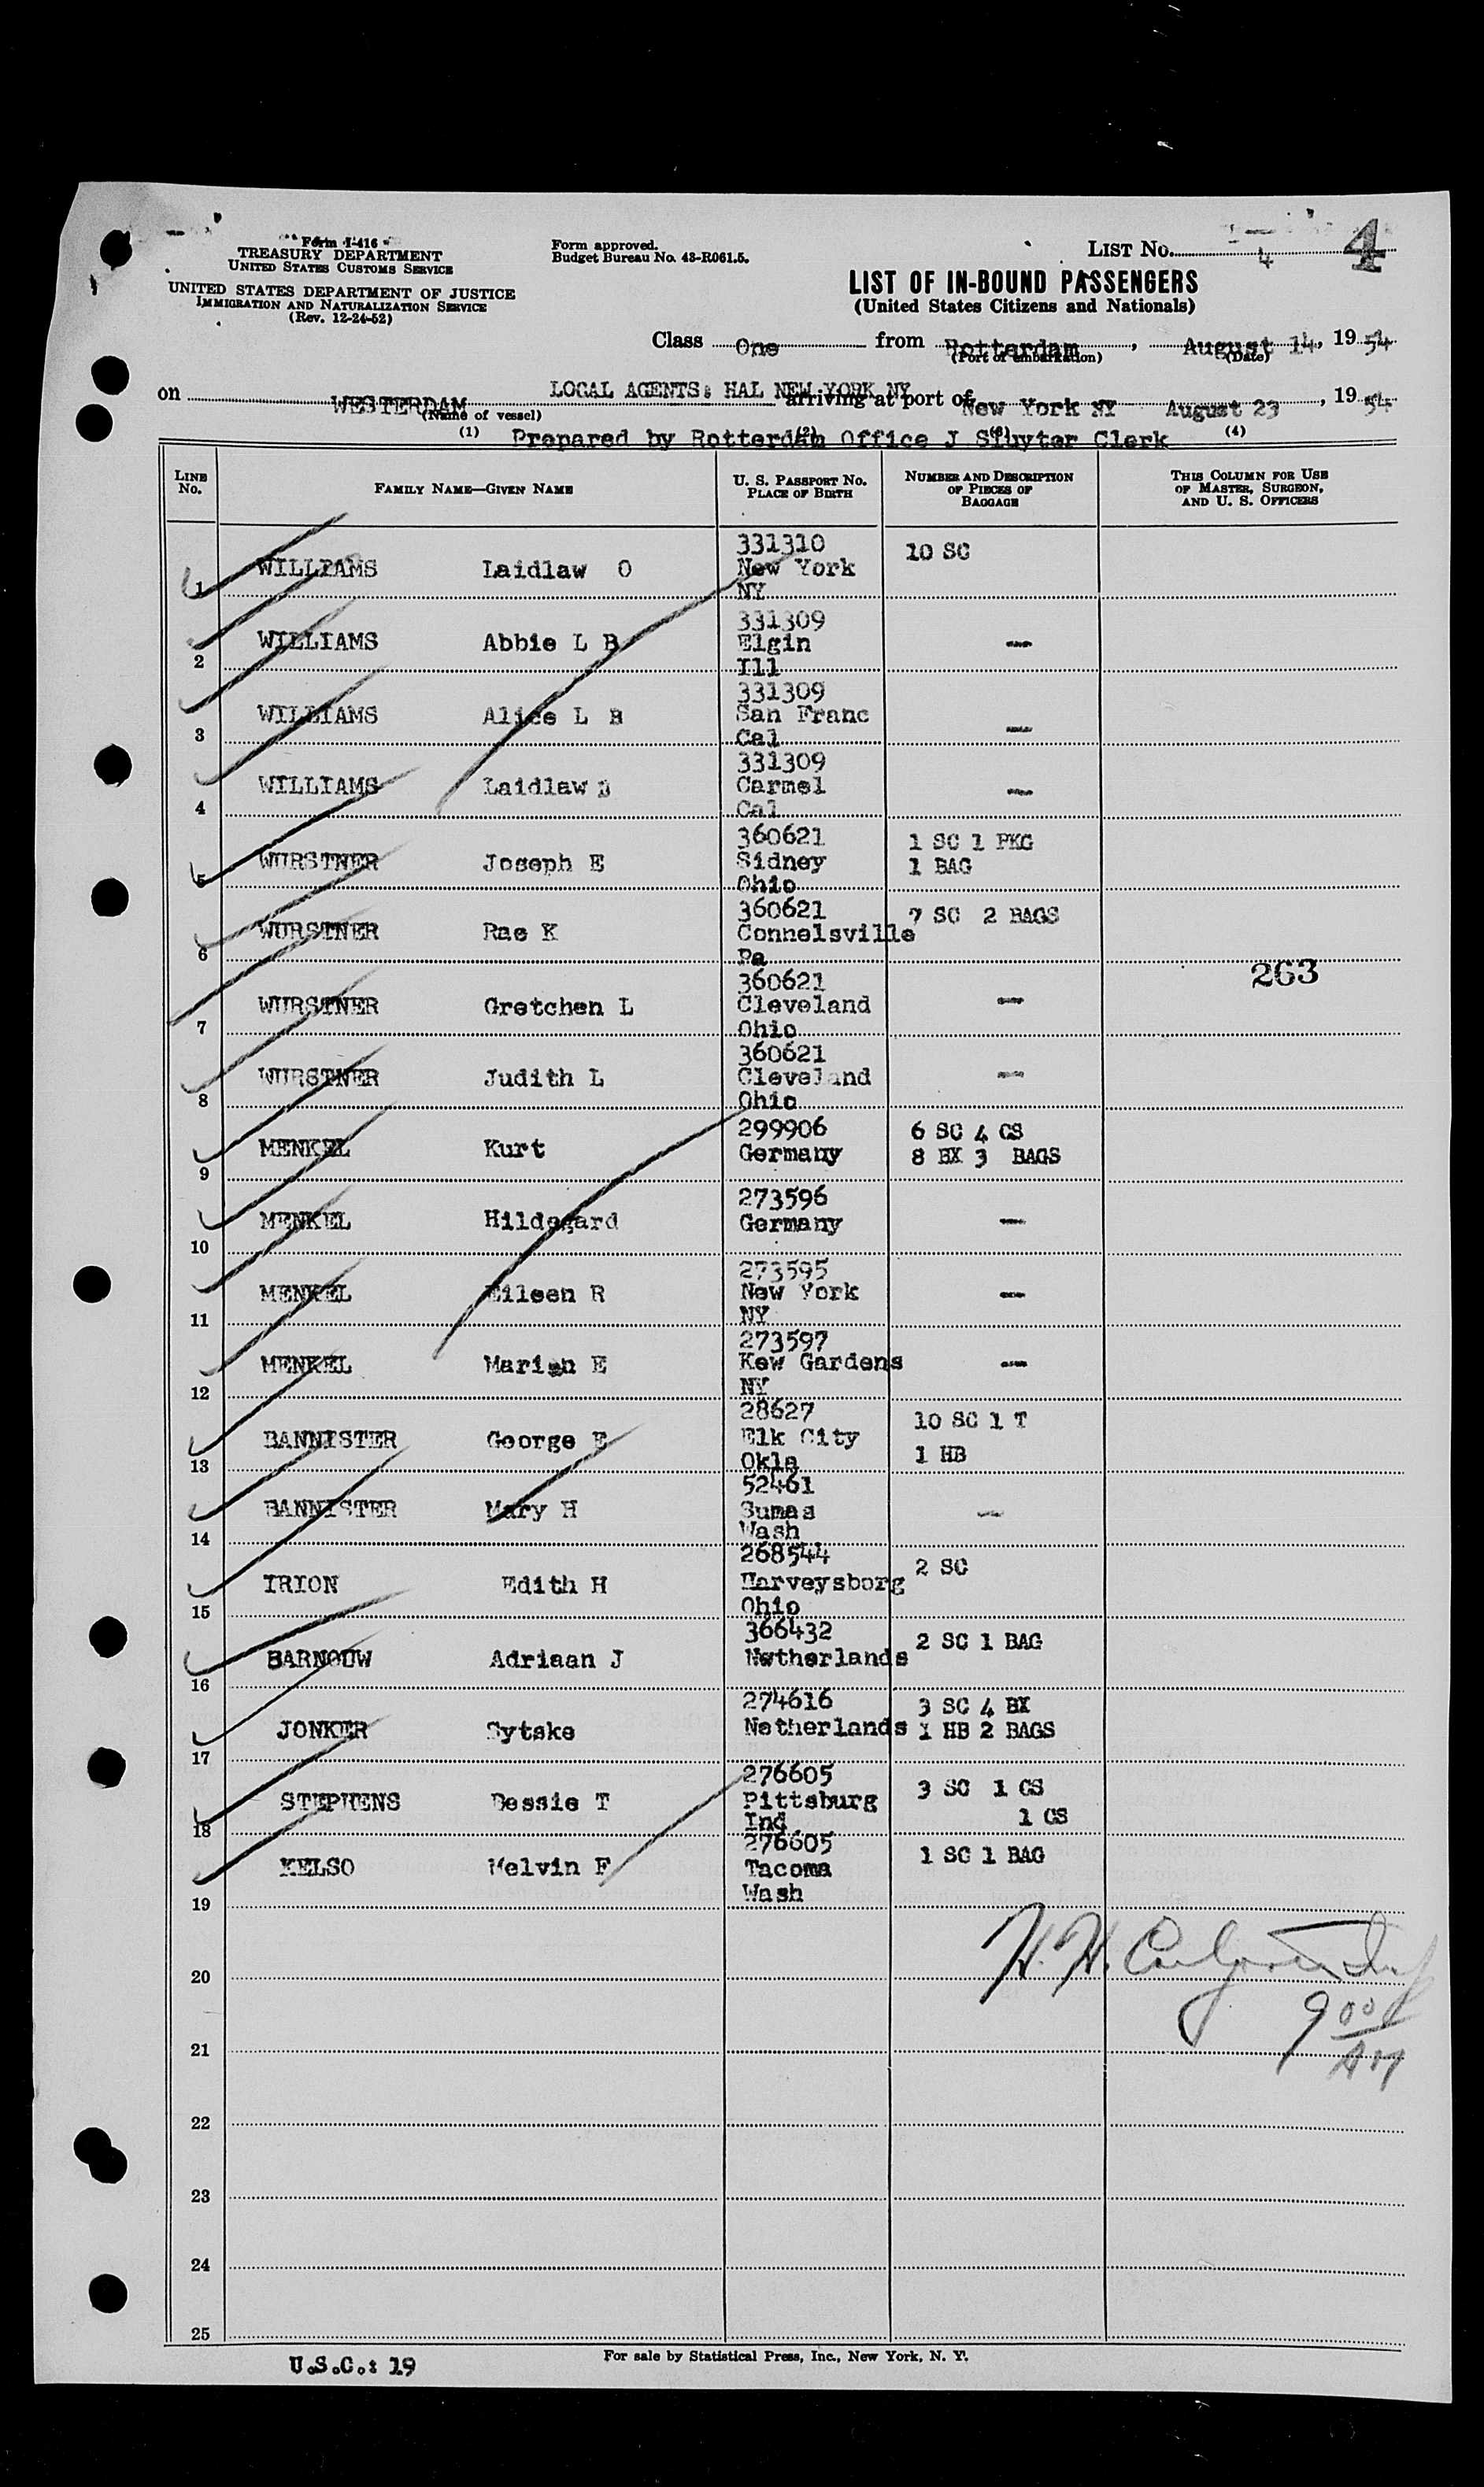 Form I-416
TREASURY DEPARTMENT
UNITED STATES CUSTOMS SERVICE
UNITED STATES DEPARTMENT OF JUSTICE
IMMIGRATION AND NATURALIZATION SERVICE
(Rev. 12-24-52)
Form approved.
Budget Bureau No. 43-R061.5.
LIST No. 4 4
LIST OF IN-BOUND PASSENGERS
(United States Citizens and Nationals)
Class One from Rotterdam, August 14, 1954
(Port of embarkation) (Date)
LOCAL AGENTS: HAL NEW YORK NY
on WESTERDAM arriving at port of New York NY August 23, 1954
(Name of vessel)
(1) (2) (3) (4)
Prepared by Rotterdam Office J Sluyter Clerk
LINE No. FAMILY NAME—GIVEN NAME U. S. PASSPORT NO. PLACE OF BIRTH NUMBER AND DESCRIPTION OF PIECES OF BAGGAGE THIS COLUMN FOR USE OF MASTER, SURGEON, AND U. S. OFFICERS
1 WILLIAMS Laidlaw O 331310 New York NY 10 SC
2 WILLIAMS Abbie L B 331309 Elgin Ill —
3 WILLIAMS Alice L B 331309 San Franc Cal —
4 WILLIAMS Laidlaw B 331309 Carmel Cal —
5 WURSTNER Joseph E 360621 Sidney Ohio 1 SC 1 PKG 1 BAG
6 WURSTNER Rae K 360621 Connelsville Pa 7 SC 2 BAGS
263
7 WURSTNER Gretchen L 360621 Cleveland Ohio —
8 WURSTNER Judith L 360621 Cleveland Ohio —
9 MENKEL Kurt 299906 Germany 6 SC 4 CS 8 BX 3 BAGS
10 MENKEL Hildegard 273596 Germany —
11 MENKEL Eileen R 273595 New York NY —
12 MENKEL Marion E 273597 Kew Gardens NY —
13 BANNISTER George E 28627 Elk City Okla 10 SC 1 T 1 HB
14 BANNISTER Mary H 52461 Sumas Wash —
15 IRION Edith H 268544 Harveysborg Ohio 2 SC
16 BARNOUW Adriaan J 366432 Netherlands 2 SC 1 BAG
17 JONKER Sytske 274616 Netherlands 3 SC 4 BX 1 HB 2 BAGS
18 STEPHENS Bessie T 276605 Pittsburg Ind 3 SC 1 CS 1 CS
19 KELSO Melvin F 276605 Tacoma Wash 1 SC 1 BAG
20
H. H.
21
9 00 AM
22
23
24
25
U.S.C.: 19
For sale by Statistical Press, Inc., New York, N. Y.